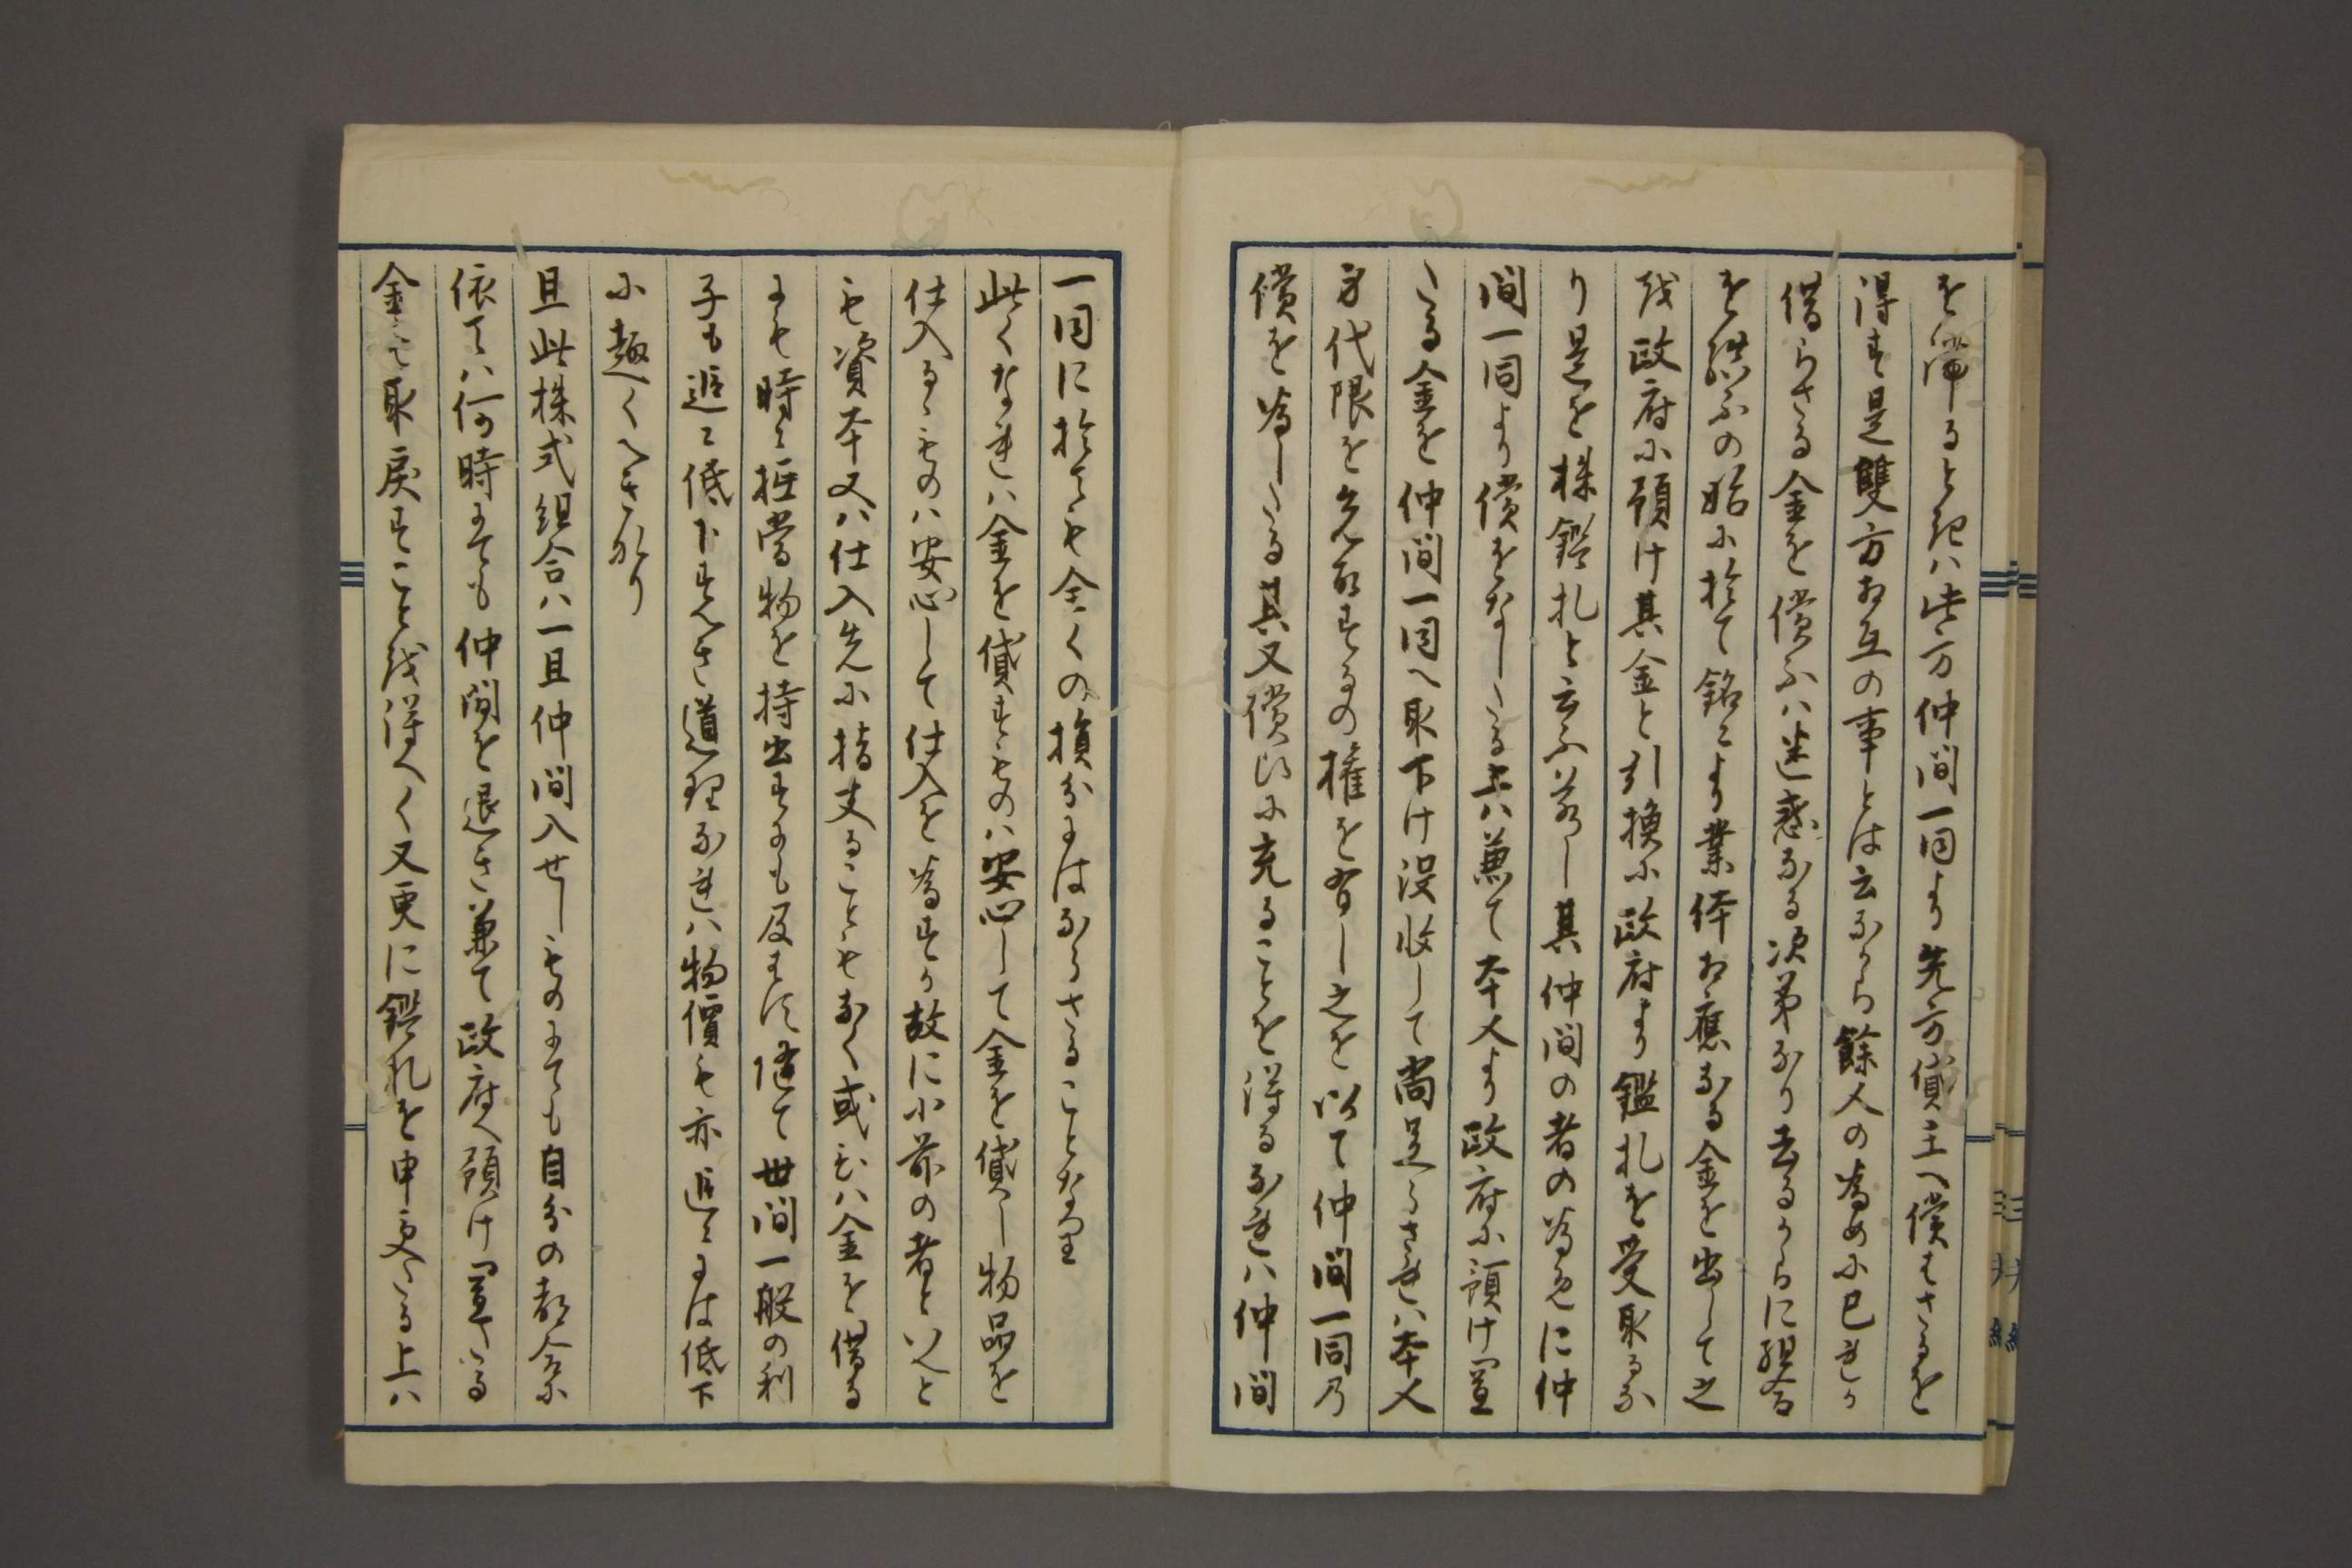 を滞るときハ此方仲間一同より先方貸主へ償はさるを
得す是雙方お互の事とは云なから餘人の為めに己れか
借らさる金を償ふハ迷惑なる次第なり去るからに組合
を結ふの始に於て銘々より業体相應なる金を出して之
を政府に預け其金と引換に政府より鑑札を受取るな
り是を株鑑札と云ふ若し其仲間の者の為めに仲
間一同より償をなしたる上ハ兼て本人より政府に預け置
たる金を仲間一同へ取下け没收して尚足らされハ本人
身代限を先取するの權を有し之を以て仲間一同乃
償を為したる其又償ひに充ることを得るなれハ仲間
一同に於ても全くの損分にはならさることなり
此くなれハ金を貸すものハ安心して金を貸し物品を
仕入るゝものハ安心して仕入を為すか故に小前の者といへと
も資本又ハ仕入先に指支ることもなく或ひハ金を借る
にも時々抵當物を持出すにも及はす随て世間一般の利
子も追々低下すへき道理なれハ物價も亦追々には低下
に趣くへきなり
且此株式組合ハ一旦仲間入せしものにても自分の都合に
依てハ何時にても仲間を退き兼て政府へ預け置たる
金を取戻すことを得へく又更に鑑札を申受たる上ハ